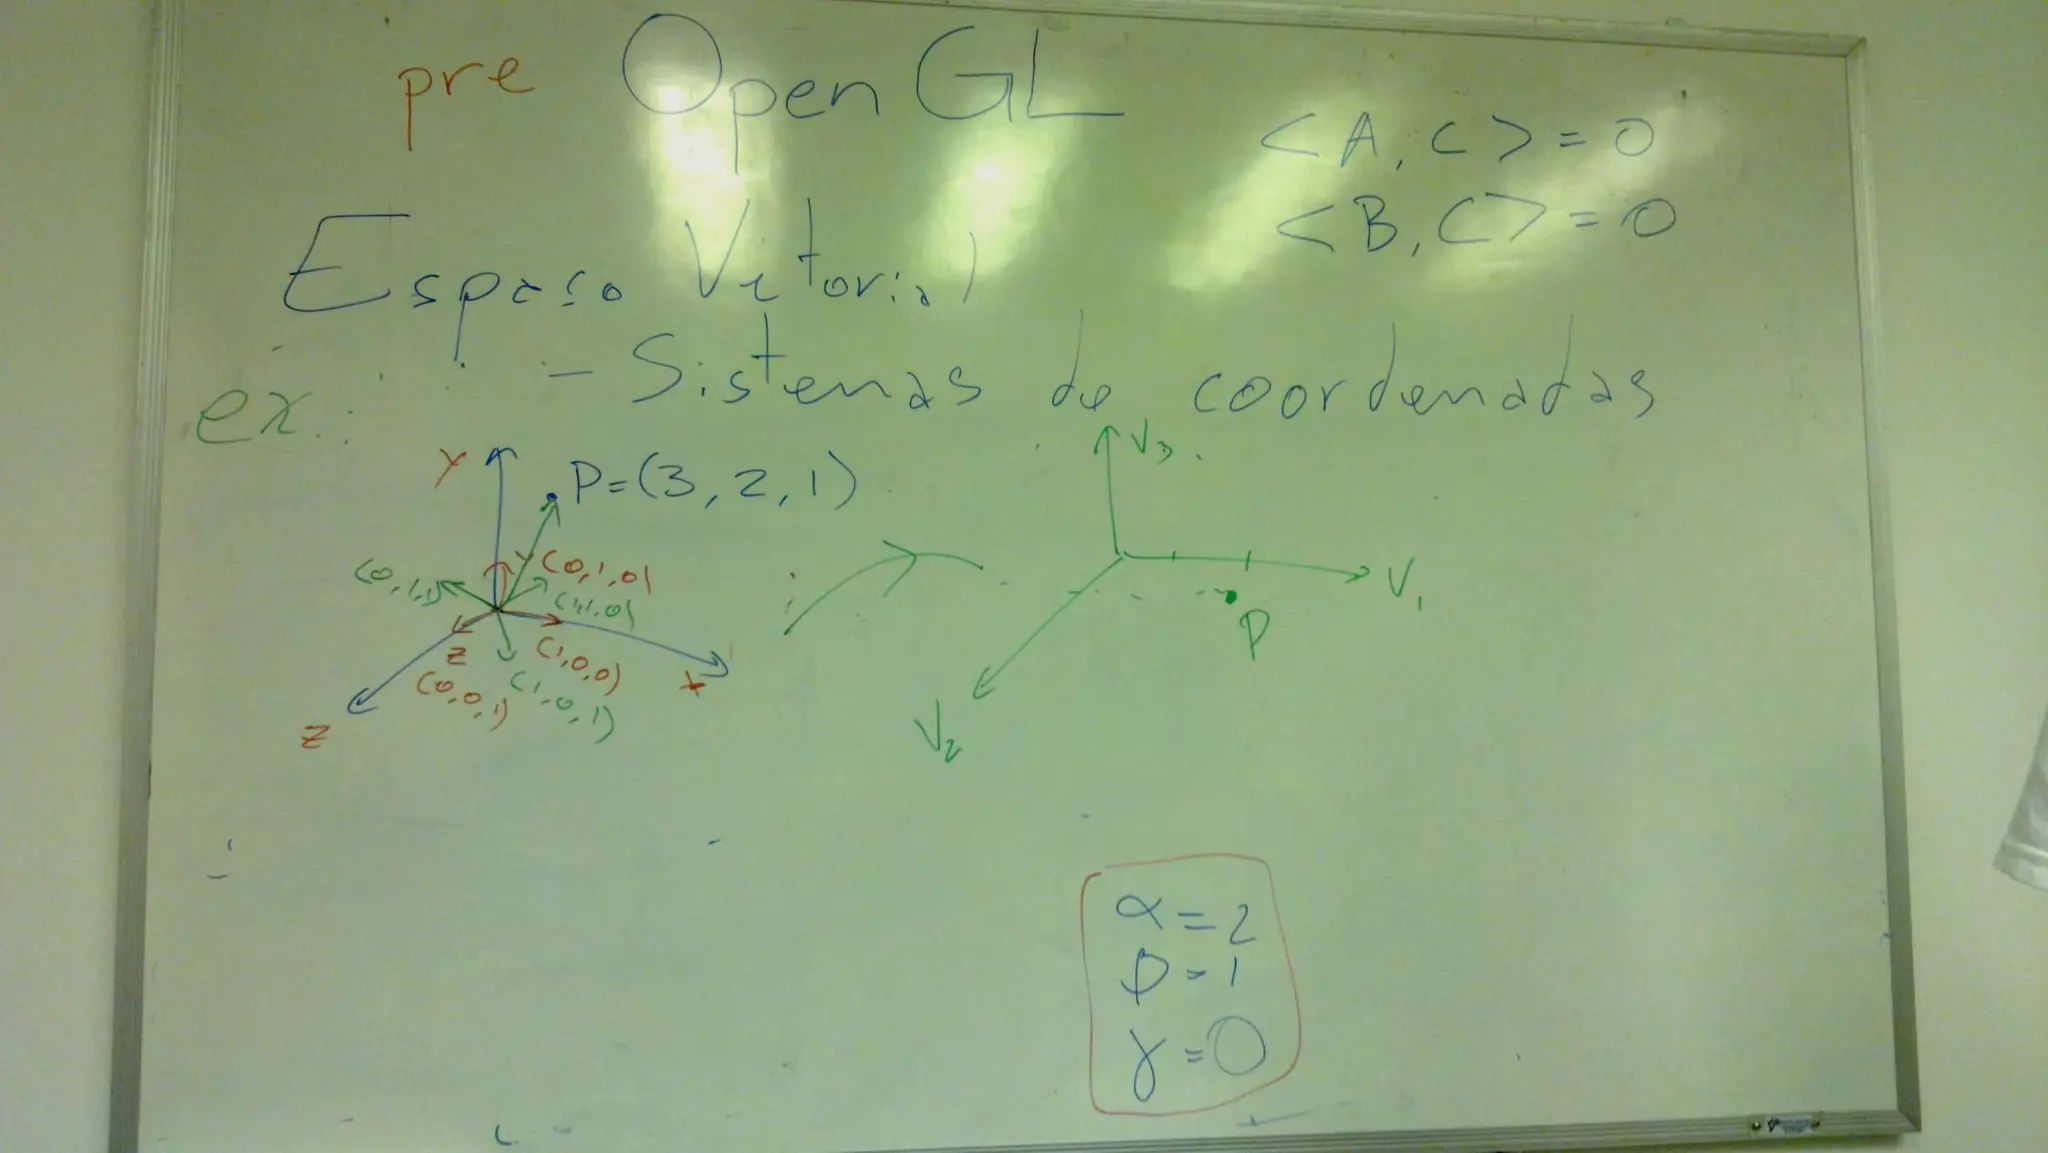 pre OpenGL
<A, C> = 0
<B, C> = 0
Espaço Vetorial
- Sistemas de coordenadas
ex.:
Y
P=(3, 2, 1)
(0,1,1)
Y
(0,1,0)
(1,1,0)
(1,0,0)
X
Z
(0,0,1)
(1,0,1)
Z
V3
V1
P
V2
α = 2
β = 1
γ = 0